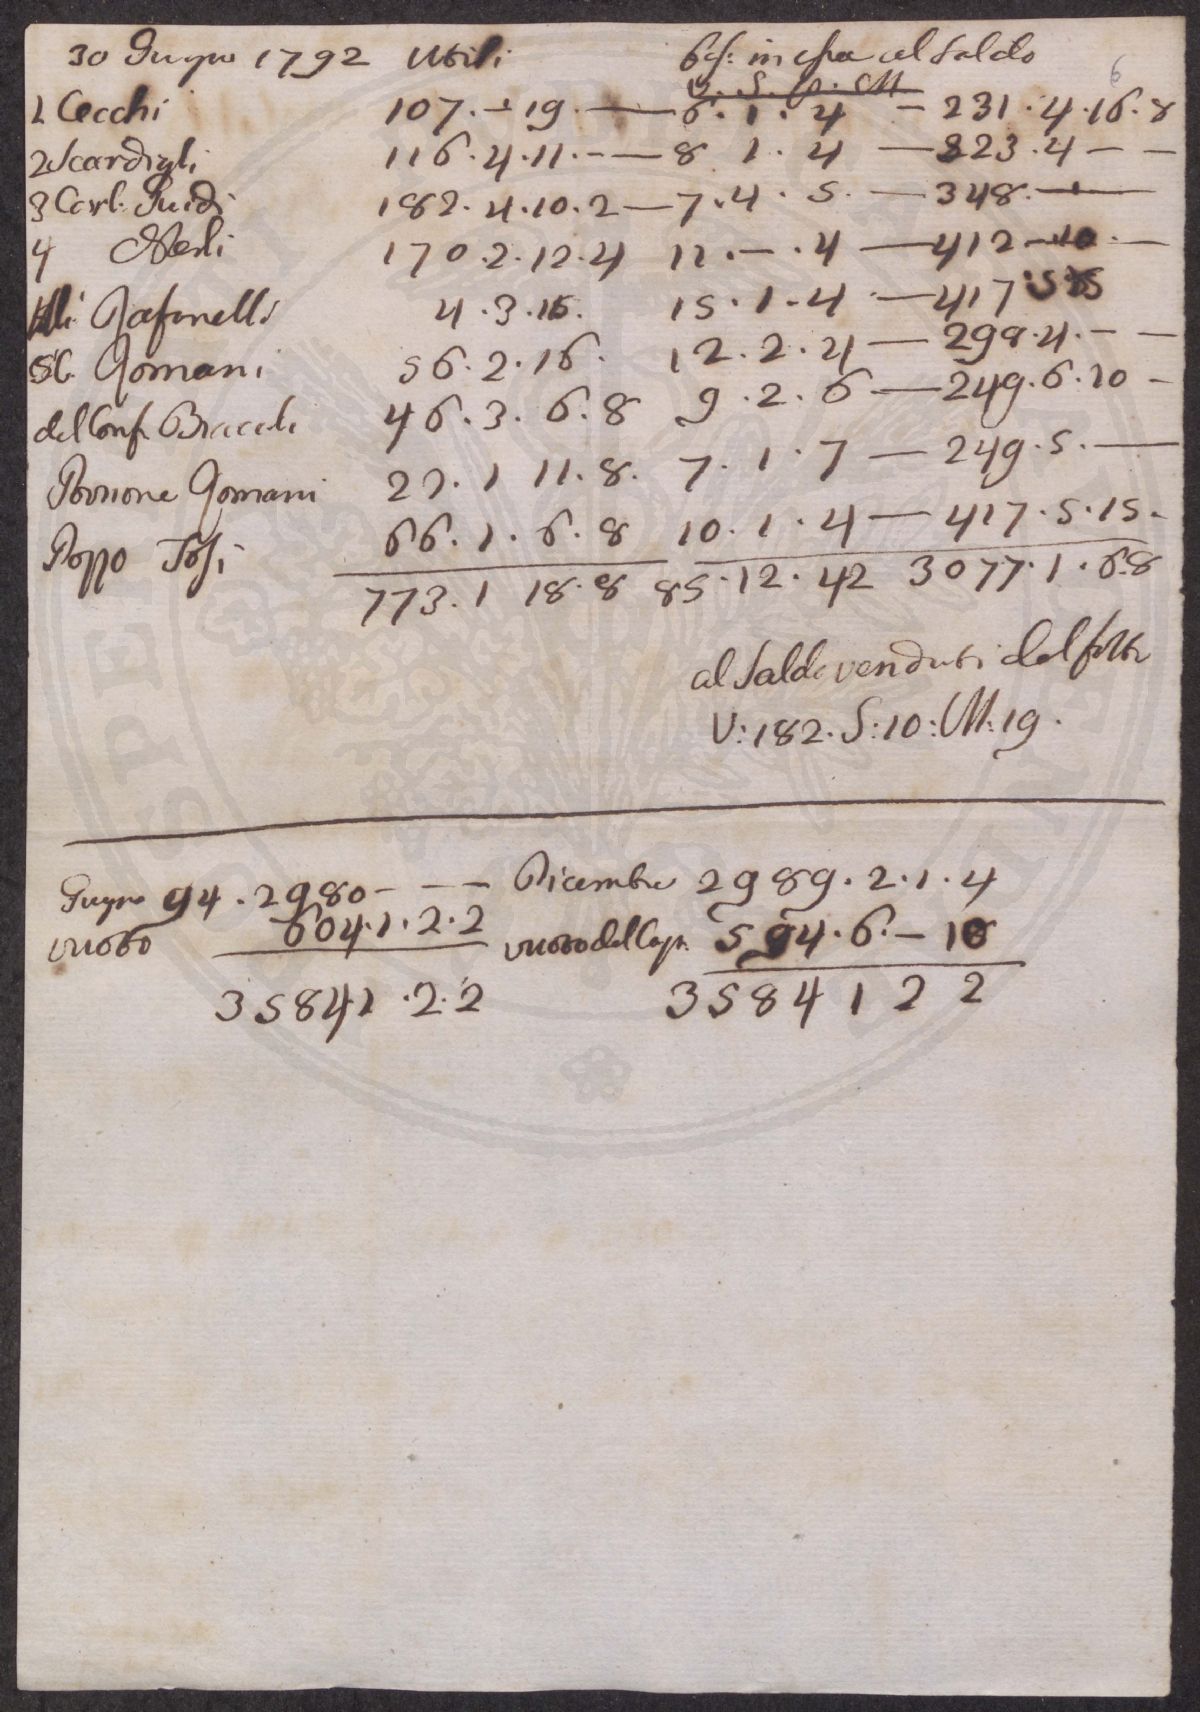 30 Giugno 1792 Utili al Saldo
6
V. S. M
1 Cecchi 107. - 19. — 6. 1. 4 - 231. 4. 16. 8
2 Scardigli 116. 4. 11. - — 8 1. 4 — 323. 4 — —
3 Carl. Guidi 182. 4. 10. 2 — 7. 4. 5. — 348. —
4 Nerli 170. 2. 12. 4 12. —. 4 — 412 — 10. —
Rafanelli 4. 3. 15. 15. 1. 4 — 417
Romani 56. 2. 16. 12. 2. 4 — 299. 4. — —
del Conf. 46. 3. 6. 8 9. 2. 6 — 249. 6. 10 -
Romani 22. 1 11. 8. 7. 1. 7 — 249. 5. —
Poppo Tosi 66. 1. 6. 8 10. 1. 4 — 417. 5. 15.
773. 1 18. 8 85. 12. 42 3077. 1. 6. 8
al Saldo venduti dal
V: 182. S: 10: M: 19.
Giugno 94. 2980 — — — Dicembre 2989. 2. 1. 4
vuoto 604. 1. 2. 2 vuoto del 594. 6. — 10
35841. 2. 2 3584 1 2 2